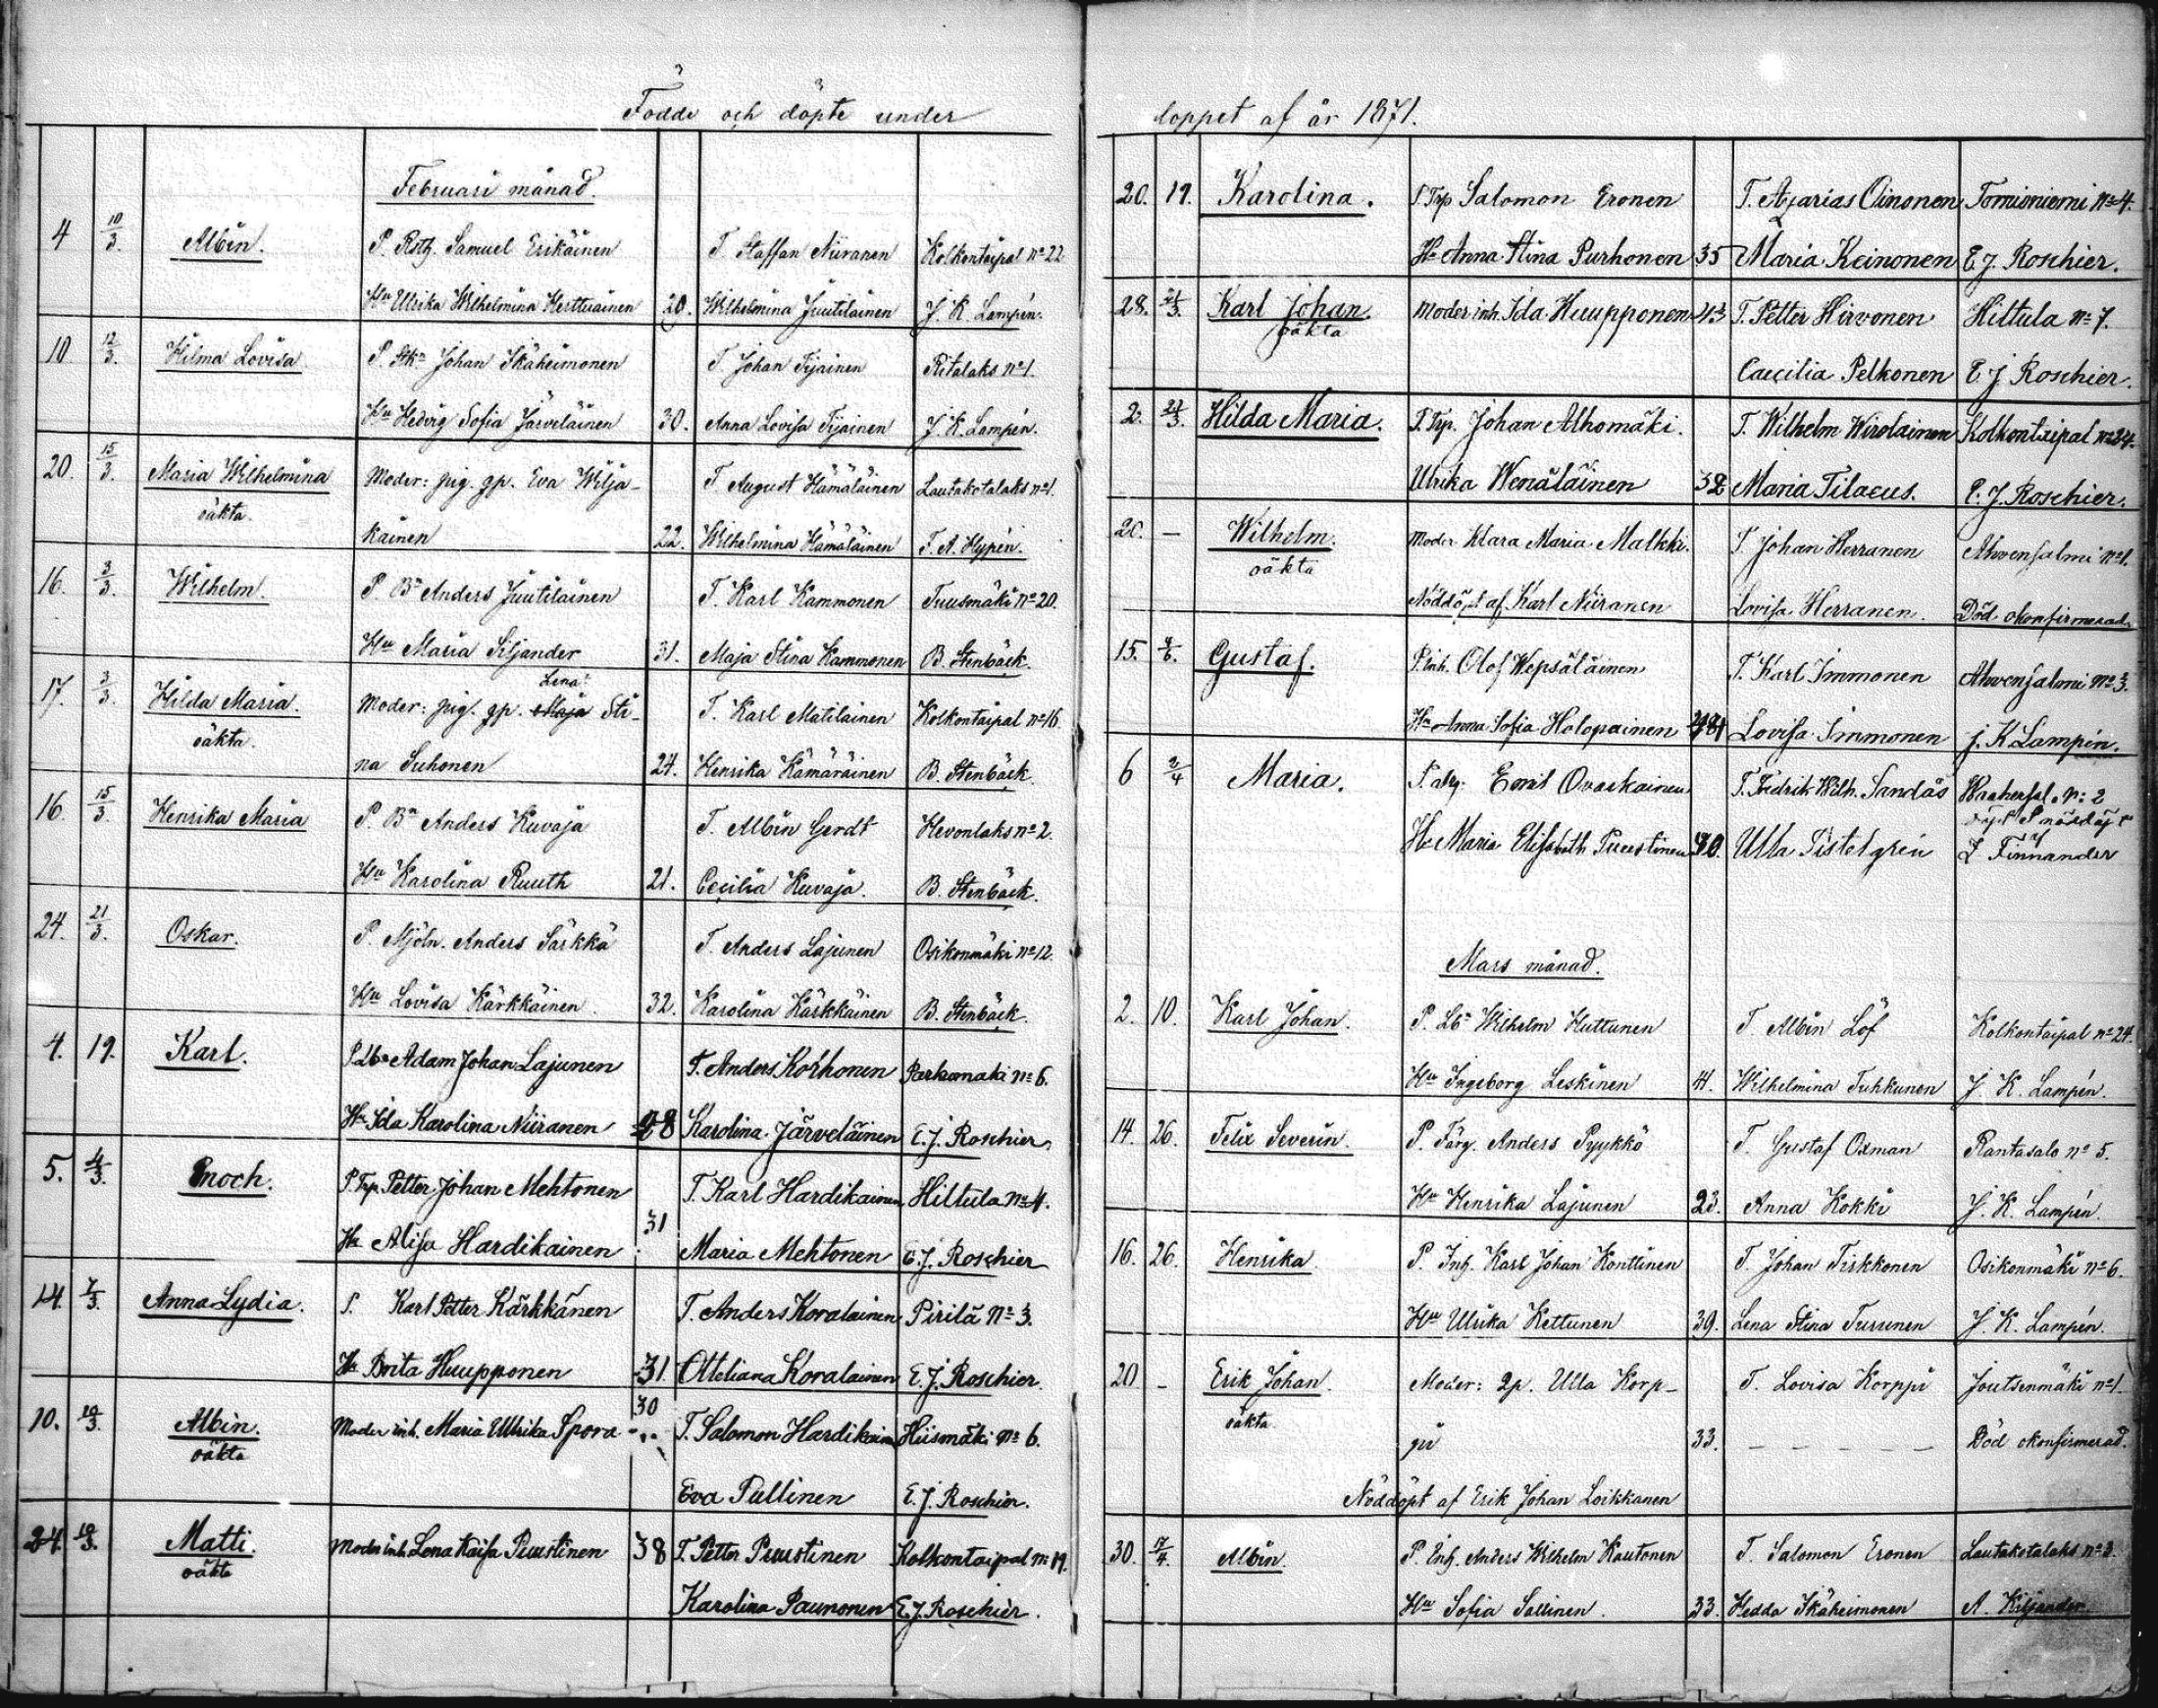 Födde och döpte under
Februari månad.
4 10/3. Albin. P. Rsth. Samuel Erikäinen T. Staffan Niiranen Kolkontaipal No 22
Hu Ulrika Wilhelmina Herttuainen 20. Wilhelmina Juutilainen J. K. Lampén.
10 12/3. Hilma Lovisa P. Stkn Johan Ikäheimonen T. Johan Tijainen Ritalaks No 1.
Hu Hedvig Sofia Järveläinen 30. Anna Lovisa Tijainen J. K. Lampén.
20. 15/3. Maria Wilhelmina Moder: pig. gp. Eva Wilja- T. August Hämäläinen Lautakotalaks No 1.
oäkta.
kainen 22. Wilhelmina Hämäläinen F. A. Hypén.
16. 3/3. Wilhelm. P. Bn Anders Juutilainen T. Karl Kammonen Tuusmäki No 20.
Hu Maria Siljander 31. Maja Stina Kammonen B. Stenbäck.
Lena
17. 3/3. Hilda Maria. Moder: pig. gp. Maja Sti- T. Karl Matilainen Kolkontaipal No 16.
oäkta.
na Suhonen 24. Henrika Kämäräinen B. Stenbäck.
16 15/3 Henrika Maria P. Bn Anders Kuvaja T. Albin Gerdt Hevonlaks No 2.
Hu Karolina Ruuth 21. Cecilia Kuvaja. B. Stenbäck.
24. 21/3. Oskar. P. Mjöln. Anders Särkkä T. Anders Lajunen Osikonmäki No 12.
Hu Lovisa Kärkkäinen. 32. Karolina Kärkkäinen B. Stenbäck.
4. 19. Karl. P. Lbn Adam Johan Lajunen T. Anders Korhonen Parkumäki No 6.
Hu Ida Karolina Niiranen 28 Karolina Järveläinen E. J. Roschier.
5. 4/3. Enoch. P. Trp. Petter Johan Mehtonen T. Karl Hardikainen Hiltula No 4.
Hu Alisa Hardikainen 31 Maria Mehtonen E. J. Roschier
14. 7/3. Anna Lydia. P. Karl Petter Kärkkänen T. Anders Koralainen Pirilä No 3.
Hu Brita Huupponen 31 Otteliana Koralainen E. J. Roschier.
10. 10/3. Albin. Moder inh. Maria Ullrika Spora 30 T. Salomon Hardikain Hiismäki No 6.
oäkta
Eva Pullinen E. J. Roschier.
24. 10/3. Matti. Moder inh. Lena Kaisa Puustinen 38 T. Petter Puustinen Kolkontaipal No 19.
oäkta
Karolina Paunonen E. J. Roschier.
loppet af år 1871.
20. 19. Karolina. P. Trp Salomon Eronen T. Azarias Oinonen Tomioniemi No 4.
Hu Anna Stina Purhonen 35 Maria Keinonen E. J. Roschier.
28. Karl Johan Moder inh. Ida Huupponen 43 T. Petter Hirvonen Hiltula No 7.
oäkta
Caecilia Pelkonen E. J. Roschier.
2. Hilda Maria. P. Trp. Johan Alhomäki. T. Wilhelm Wirolainen Kolkontaipal No 24.
Ulrika Wenäläinen 32 Maria Tilaeus. E. J. Roschier.
20. — Wilhelm. Moder Klara Maria Malkki. T. Johan Herranen Ahvensalmi No 1.
oäkta
Nöddöpt af Karl Niiranen Lovisa Herranen. Död okonfirmerad.
15. Gustaf. P. Inh. Olof Wepsäläinen T. Karl Immonen Ahvensalmi No 3.
Hu Anna Sofia Holopainen Lovisa Immonen J. K. Lampén.
6 2/4 Maria. Emil Ovaskainen T. Fredrik Wilh. Sandås No: 2
Hu Maria Elisabeth Puustinen 40. Ulla Tistelgrén Z. Finnander
Mars månad.
2. 10. Karl Johan. P. Lbn Wilhelm Huttunen T. Albin Löf Kolkontaipal No 24.
Hu Ingeborg Leskinen 41. Wilhelmina Tukkunen J. K. Lampén.
14. 26. Felix Severin. P. Färg. Anders Pyykkö T. Gustaf Oxman Rantasalo No 5.
Hu Henrika Lajunen 23. Anna Kokki J. K. Lampén.
16. 26. Henrika P. Inh. Karl Johan Konttinen T. Johan Tirkkonen Osikonmäki No 6.
Hu Ulrika Kettunen 39. Lena Stina Turunen J. K. Lampén.
20 — Erik Johan. Moder: gp. Ulla Korp- T. Lovisa Korppi Joutsenmäki No 1.
oäkta.
pi 33. — — — — — Död okonfirmerad.
Nöddöpt af Erik Johan Loikkanen
30. 17/4. Albin. P. Inh. Anders Wilhelm Kautonen T. Salomon Eronen Lautakotalaks No 3.
Hu Sofia Sallinen. 33. Hedda Ikäheimonen A. Kiljander.